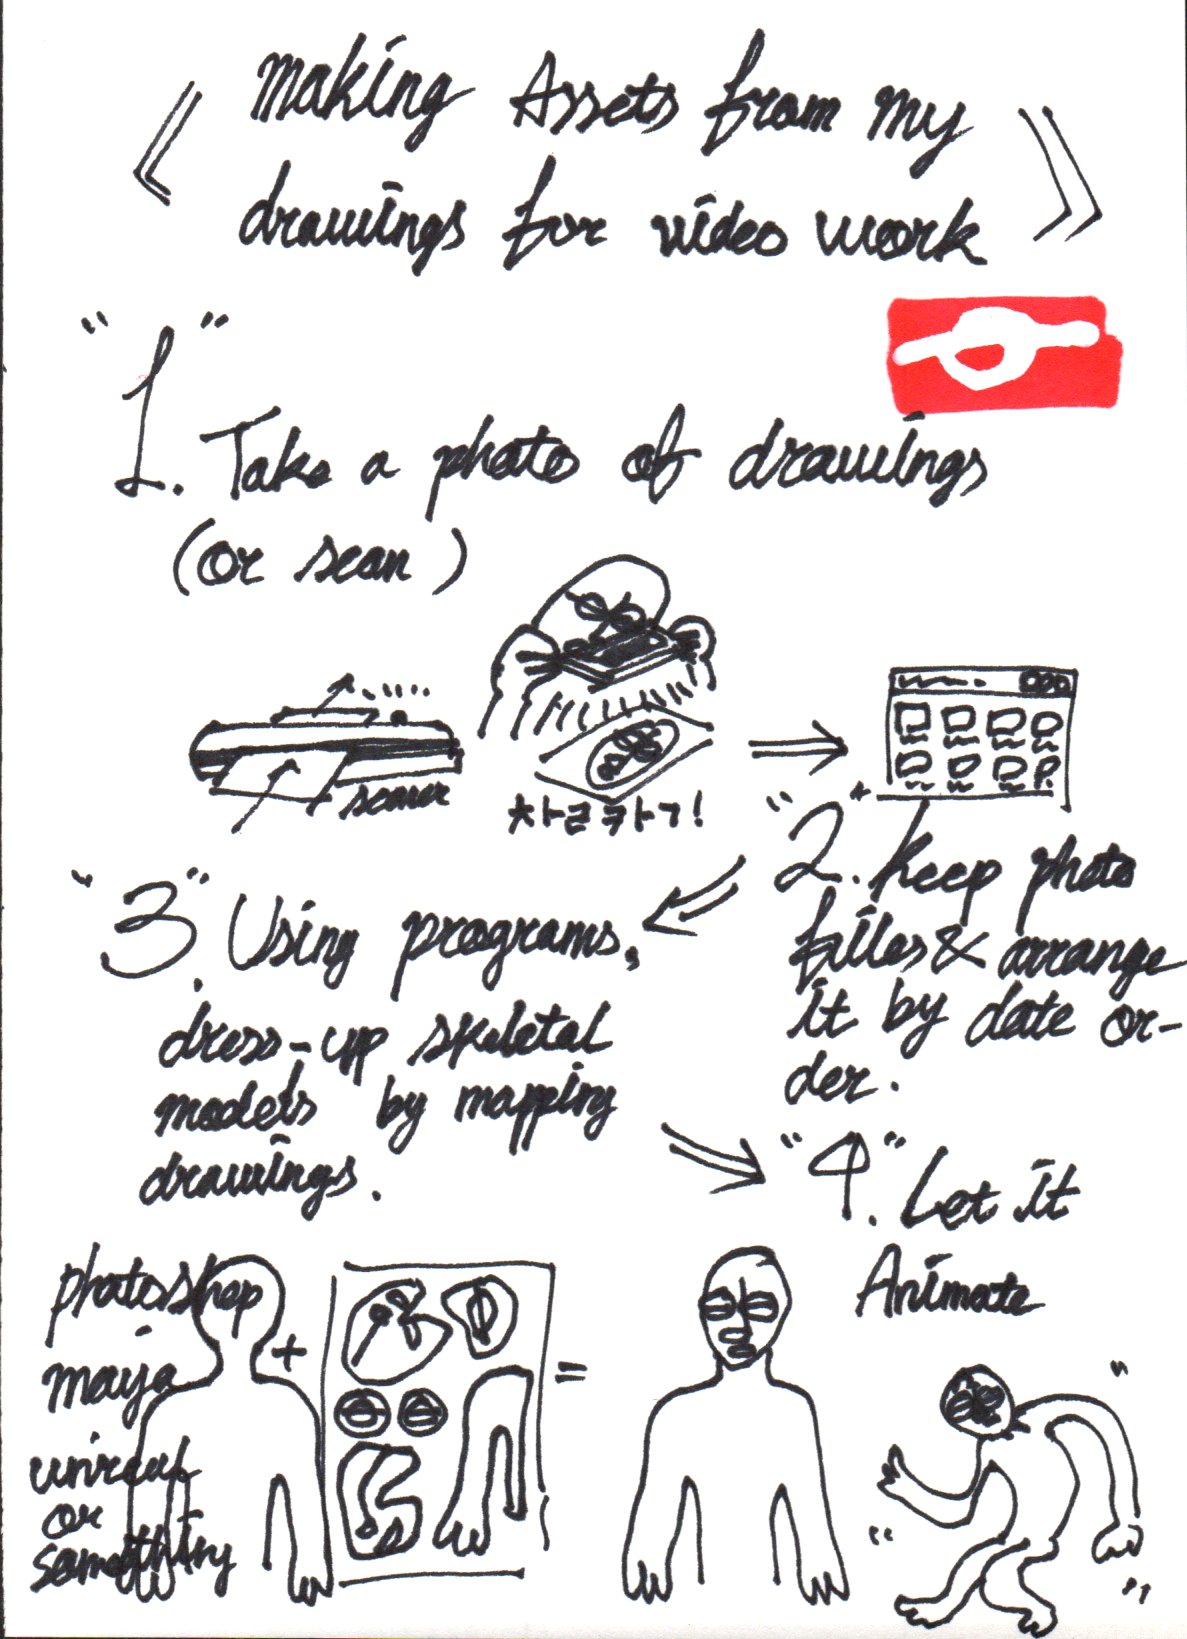 making Assets from my
drawings for video work
"1."
Take a photo of drawings
(or scan)
scaner
차르카기!
"2". Keep photo
filles & arrange
it by date or-
der.
"3". Using programs,
dress-up skeletal
models by mapping
drawings.
"4". Let it
Animate
photoshop
maya
unreal
or
something
+
=